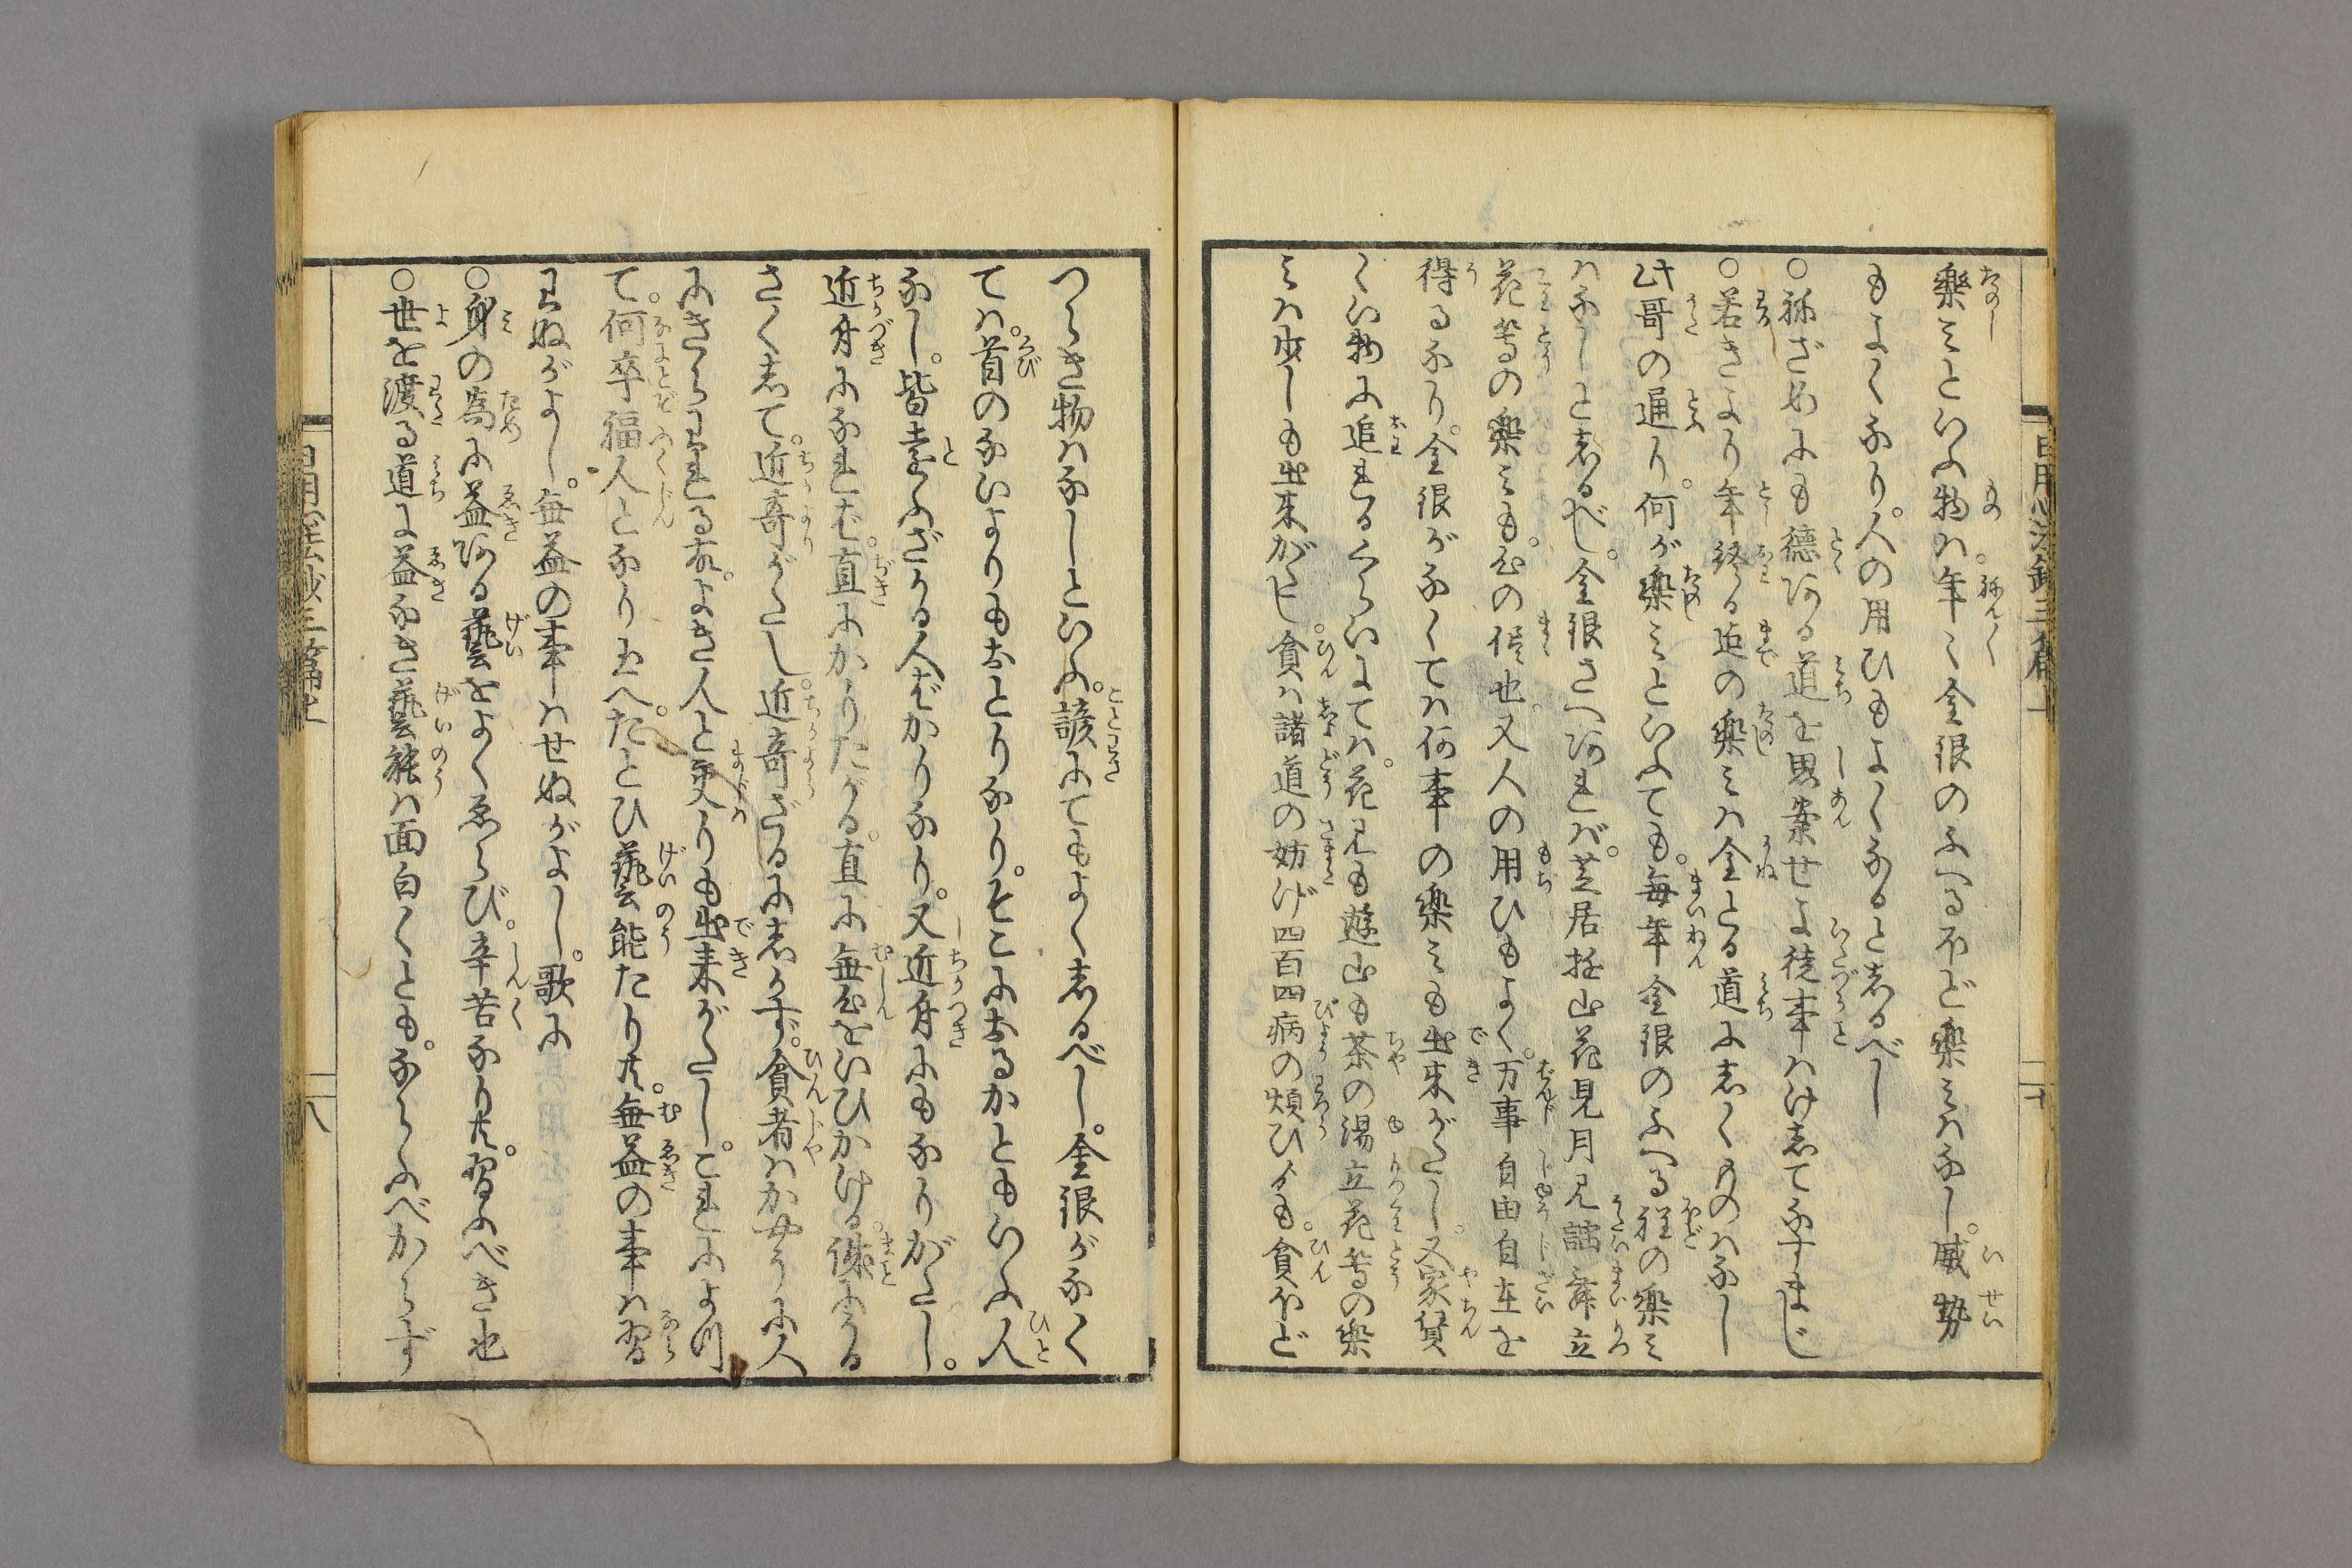 楽ミといふ物ハ。年〻金銀のふへるほど楽ミハなし。威勢
もよくなり。人の用ひもよくなると志るべし
○称ざめにも徳ある道を思案せよ徒事ハけ志てなすまじ
○若きより年終る迄の楽ミハ金とる道に志くものハなし
此哥の通り。何が楽ミといふても。毎年金銀のふへる程の楽ミ
ハなしと志るべし。金銀さへあれバ。芝居遊山花見月見謡舞立
花等の楽ミも。心の侭也。又人の用ひもよく。万事自由自在を
得るなり。金銀がなくてハ何事の楽ミも出来がたし。又家賃
くい物に追るゝくらいにてハ。花見も遊山も茶の湯立花等の楽
ミハ少しも出来がたし。貧ハ諸道の妨げ四百四病の煩ひゟも。貧ほど
つらき物ハなしといふ。諺にてもよく志るべし。金銀がなく
てハ。首のないよりもおとりなり。そこにおるかともいふ人
なし。皆うとふざける人ばかりなり。又近付にもなりがたし。
近付になれど。直にかりたがる。直に無心をいひかける。誠にうる
さく志て。近寄がたし。近寄ざるに志かず。貧者ハかやうに人
にきらわるゝ故。よき人と交りも出来がたし。これによつ
て。何卒福人となり玉へ。たとひ藝能たり共。無益の事ハ習
わぬがよし。無益の事ハせぬがよし。歌に
○身の為に益ある藝をよくゑらび。辛苦なり共。習ふべき也
○世を渡る道に益なき藝能ハ面白くとも。ならふべからず
八